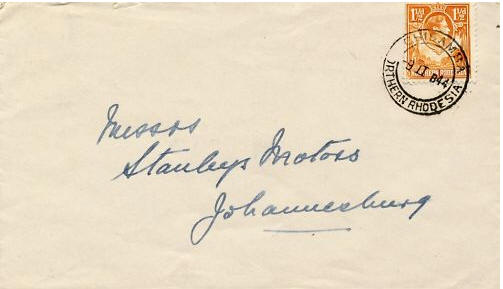 1½d 1½d
9 II 44
NORTHERN RHODESIA
Messrs
Stanleys Motors
Johannesburg